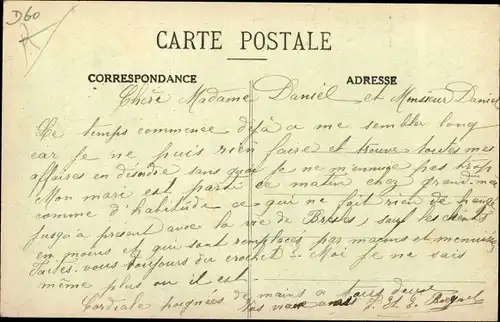 D60
CARTE POSTALE
CORRESPONDANCE
ADRESSE
Chère Madame Daniel et Monsieur Daniel
Le temps commence déjà a me sembler long
car je ne puis rien faire et trouve toutes mes
affaires en désordre sans quoi je ne m'ennuie pas trop
Mon mari est parti ce matin chez grand-mère
comme d'habitude ce qui ne fait rien de
jusqu'a présent avec la vie de sauf les clients
en moins et qui sont remplacés par maçons et menuisiers
Faites-vous toujours du crochet? Moi je ne sais
même plus ou il est
Cordiale poignées de mains a tous deux
Vos vieux amis